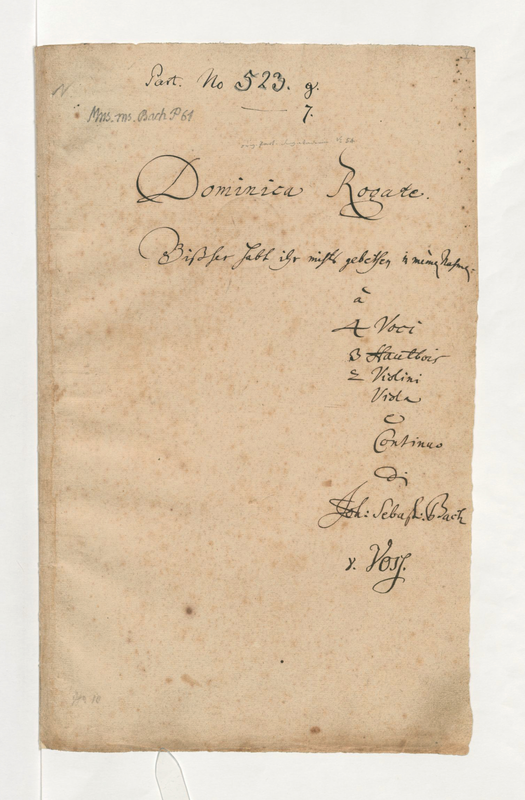 Part. No 523. g.
7.
Mus. ms. Bach P 61
Dominica Rogate.
Bißher habt ihr nichts gebethen in meinē Nahmē.
à
4 Voci
3 Hautbois
2 Violini
Viola
e
Continuo
di
Joh: Sebast: Bach
v. Voss.